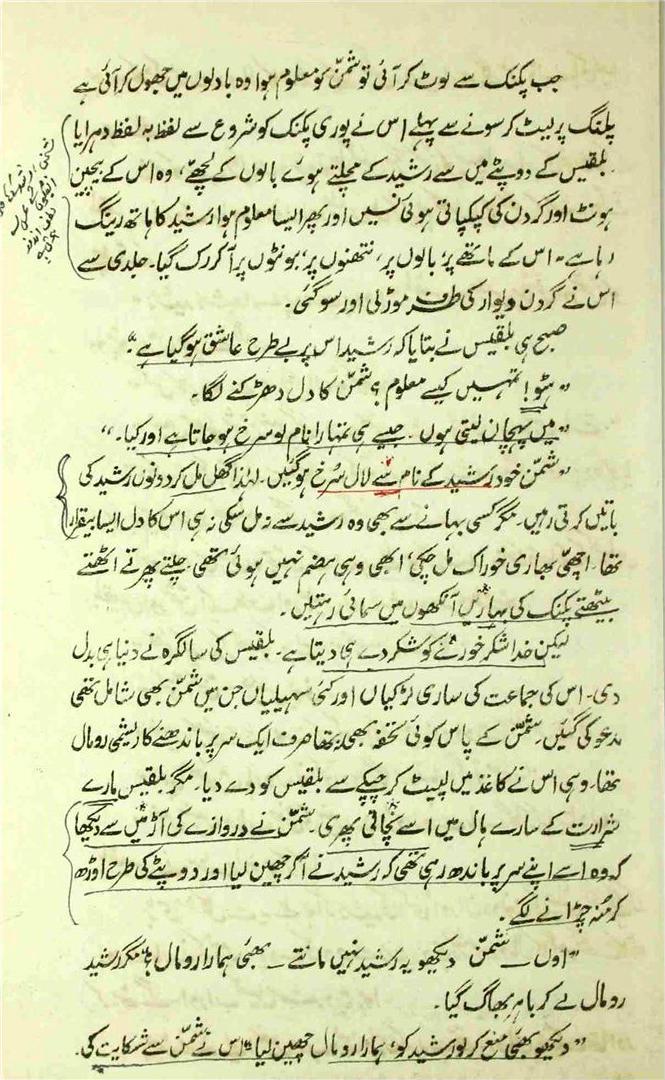 جب پکنک سے لوٹ کر آئی تو شمّن کو معلوم ہوا وہ بادلوں میں جھول کر آئی ہے
پلنگ پر لیٹ کر سونے سے پہلے اس نے پوری پکنک کو شروع سے لفظ بہ لفظ دہرایا
بلقیس کے دوپٹے میں سے رشید کے مچلتے ہوئے بالوں کے لچھے، وہ اس کے بیچین
ہونٹ اور گردن کی کپکپاتی ہوئی نسیں اور پھر ایسا معلوم ہوا رشید کا ہاتھ رینگ
رہا ہے۔ اس کے ماتھے پر، بالوں پر، نتھنوں پر، ہونٹوں پر آکر رک گیا۔ جلدی سے
اس نے گردن دیوار کی طرف موڑ لی اور سو گئی۔
صبح ہی بلقیس نے بتایا کہ رشید اس پر بے طرح عاشق ہو گیا ہے"۔
"ہٹو! تمہیں کیسے معلوم؟ شمّن کا دل دھڑکنے لگا۔
"میں پہچان لیتی ہوں۔ جیسے ہی تمہارا نام لو سرخ ہو جاتا ہے اور کیا۔"
"شمّن خود رشید کے نام سے لال سُرخ ہو گئیں۔ لہٰذا گھل مل کر دونوں رشید کی
باتیں کرتی رہیں۔ مگر کسی بہانے سے بھی وہ رشید سے نہ مل سکی نہ ہی اس کا دل ایسا بیقرار
تھا۔ اچھی بھاری خوراک مل چکی، ابھی وہی ہضم نہیں ہوئی تھی۔ چلتے پھرتے اٹھتے
بیٹھتے پکنک کی بہاریں آنکھوں میں سمائی رہتیں۔
لیکن خدا شکر خورے کو شکر دے ہی دیتا ہے۔ بلقیس کی سالگرہ نے دنیا ہی بدل
دی۔ اس کی جماعت کی ساری لڑکیاں اور کئی سہیلیاں جن میں شمّن بھی شامل تھی
مدعو کی گئیں۔ شمّن کے پاس کوئی تحفہ بھی نہ تھا صرف ایک سر پر باندھنے کا ریشمی رومال
تھا۔ وہی اس نے کاغذ میں لپیٹ کر چپکے سے بلقیس کو دے دیا۔ مگر بلقیس مارے
شرارت کے سارے ہال میں اسے نچاتی پھری۔ شمّن نے دروازے کی آڑ میں سے دیکھا
کہ وہ اسے اپنے سر پر باندھ رہی تھی کہ رشید نے آکر چھین لیا اور دوپٹے کی طرح اوڑھ
کر منہ چڑانے لگے۔
"اوں ــ شمّن دیکھو یہ رشید نہیں مانتے ــ بھئی ہمارا رومال؟" مگر رشید
رومال لے کر باہر بھاگ گیا۔
"دیکھو بھئی منع کر لو رشید کو، ہمارا رومال چھین لیا" اس نے شمّن سے شکایت کی۔